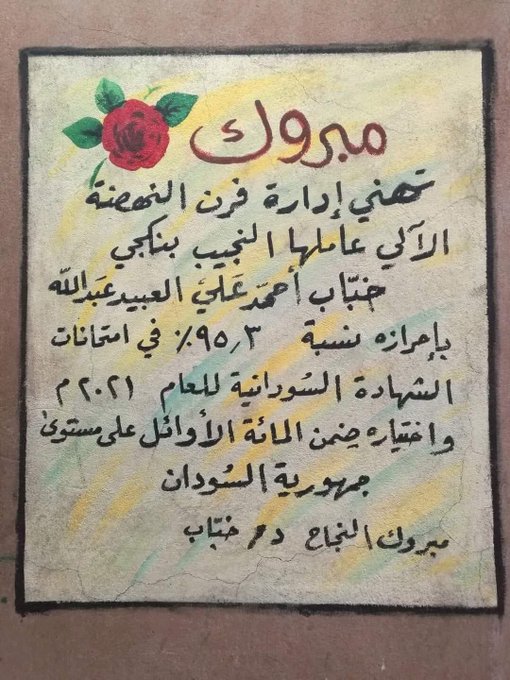 مبروك
تهني إدارة فرن النهضة
الآلي عاملها النجيب بنكجي
خبّاب أحمد علي العبيد عبدالله
بإحرازه نسبة ٩٥٫٣٪ في امتحانات
الشهادة السُودانية للعام ٢٠٢١م
واختياره ضِمن المائة الأوائل على مستوى
جمهورية السُودان
مبروك النجاح د/ خبّاب